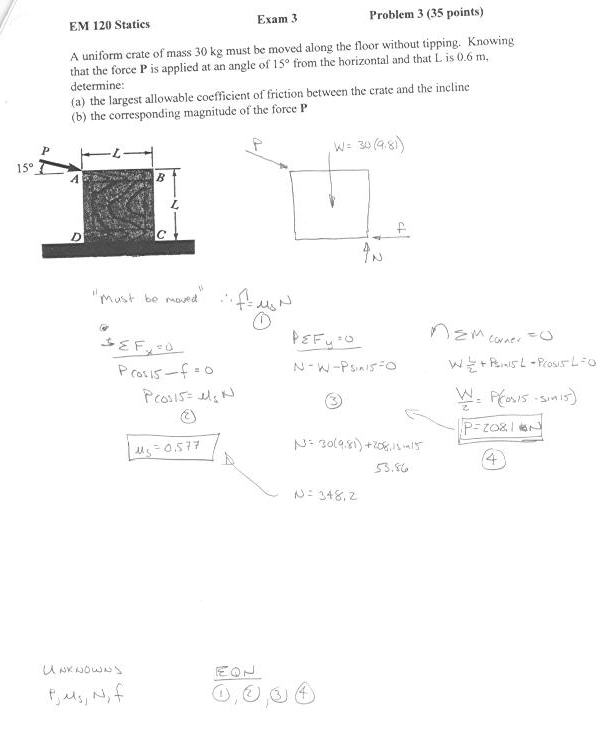 EM 120 Statics Exam 3 Problem 3 (35 points)
A uniform crate of mass 30 kg must be moved along the floor without tipping. Knowing
that the force P is applied at an angle of 15° from the horizontal and that L is 0.6 m,
determine:
(a) the largest allowable coefficient of friction between the crate and the incline
(b) the corresponding magnitude of the force P
P
15°
L
A
B
L
D
C
P
W= 30(9.81)
f
N
"Must be moved" ∴ f=μsN
①
ΣFx=0
Pcos15-f=0
Pcos15=μsN
②
μs=0.577
ΣFy=0
N-W-Psin15=0
③
N=30(9.81)+208.1sin15
53.86
N=348.2
ΣM corner=0
W L/2 + Psin15L-Pcos15L=0
W/2 = P(cos15-sin15)
P=208.1 N
④
UNKNOWNS
P, μs, N, f
EQN
①, ②, ③ ④